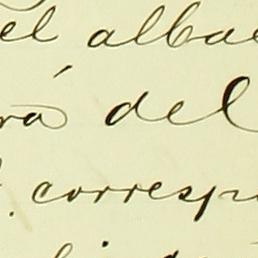 el albac
rá del
correspo